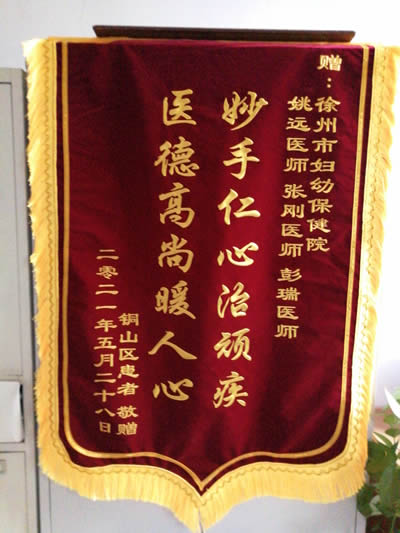 赠：徐州市妇幼保健院
姚远医师 张刚医师 彭瑞医师
妙手仁心治顽疾
医德高尚暖人心
铜山区患者 敬赠
二零二一年五月二十八日